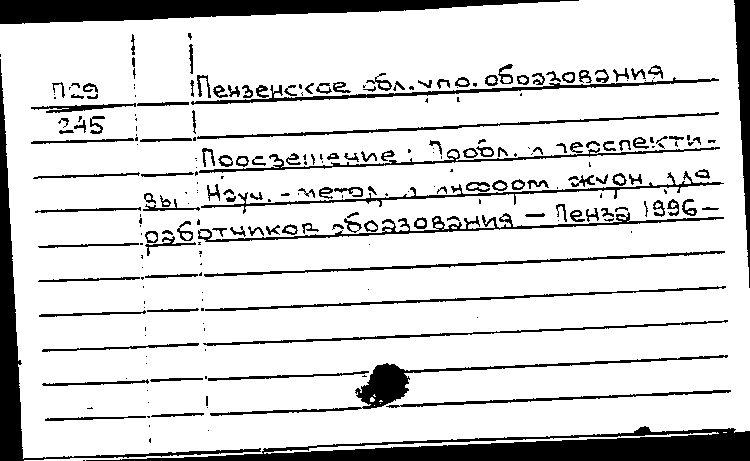 П29 Пензенское обл. упр. образования.
245
Просвещение: Пробл. и перспекти-
вы: Науч.-метод. и информ. журн. для
работников образования — Пенза 1996—